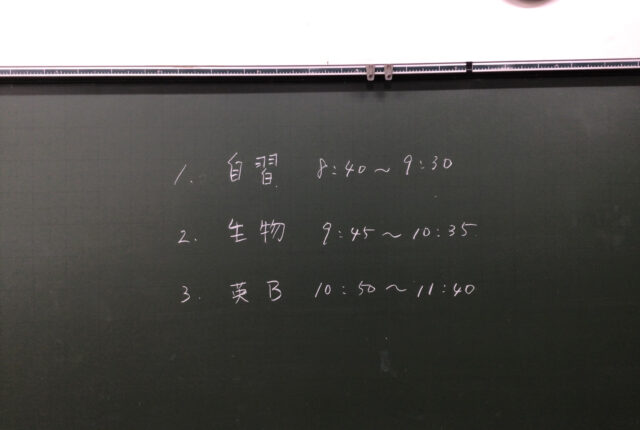 1. 自習 8:40～9:30
2. 生物 9:45～10:35
3. 英B 10:50～11:40